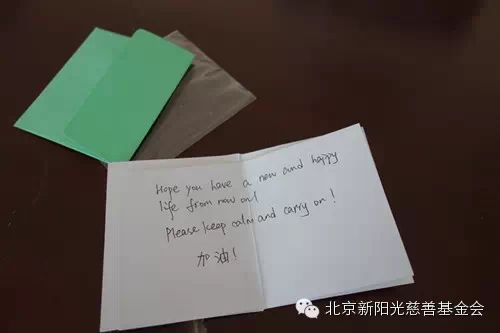 Hope you have a new and happy
life from now on!
Please keep calm and carry on!
加油!
北京新阳光慈善基金会